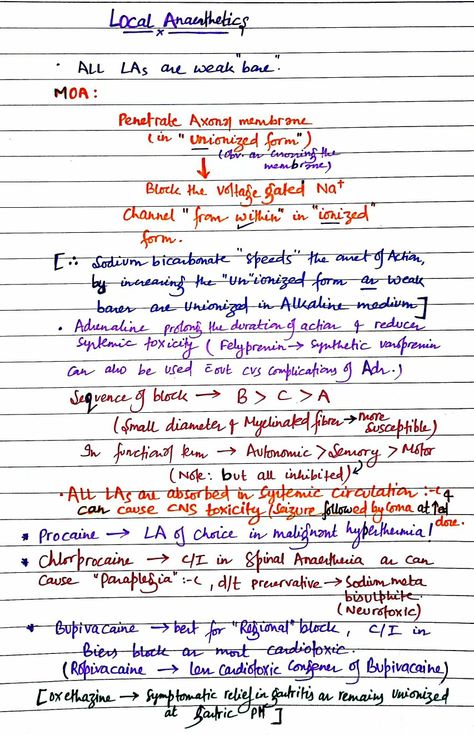 Local Anaesthetics
x
· ALL LAs are weak "base".
MOA:
Penetrate Axonal membrane
(in "unionized form")
(obv. as crossing the
membrane)
↓
Block the voltage gated Na⁺
Channel "from within" in "ionized"
form.
[∵ Sodium bicarbonate "speeds" the onset of Action,
by increasing the "un"ionized form as weak
bases are unionized in Alkaline medium]
· Adrenaline prolong the duration of action & reduces
Systemic toxicity (Felyprenin → Synthetic vasoprenin
can also be used c̄out CVS complications of Adr.)
Sequence of block → B > C > A
(Small diameter & Myelinated fibres → more
susceptible)
In function of term → Autonomic > Sensory > Motor
(Note: but all inhibited)
· ALL LAs are absorbed in Systemic Circulation :-( &
can cause CNS toxicity (Seizure followed by Coma at ↑ed
dose.
* Procaine → LA of choice in malignant hyperthermia!
* Chlorprocaine → C/I in Spinal Anaesthesia as can
Cause "Paraplegia" :-(, d/t preservative → Sodium meta
bisulphite
(Neurotoxic)
* Bupivacaine → best for "Regional" block, C/I in
Biers block as most cardiotoxic.
(Ropivacaine → less Cardiotoxic Congener of Bupivacaine)
[Oxethazine → Symptomatic relief in gastritis as remains unionized
at gastric PH]